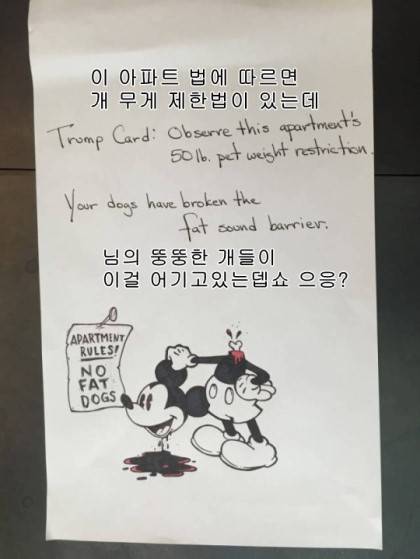 이 아파트 법에 따르면
개 무게 제한법이 있는데
Trump Card: Observe this apartment's
50lb. pet weight restriction.
Your dogs have broken the
fat sound barrier.
님의 뚱뚱한 개들이
이걸 어기고있는뎁쇼 으응?
APARTMENT
RULES!
NO
FAT
DOGS